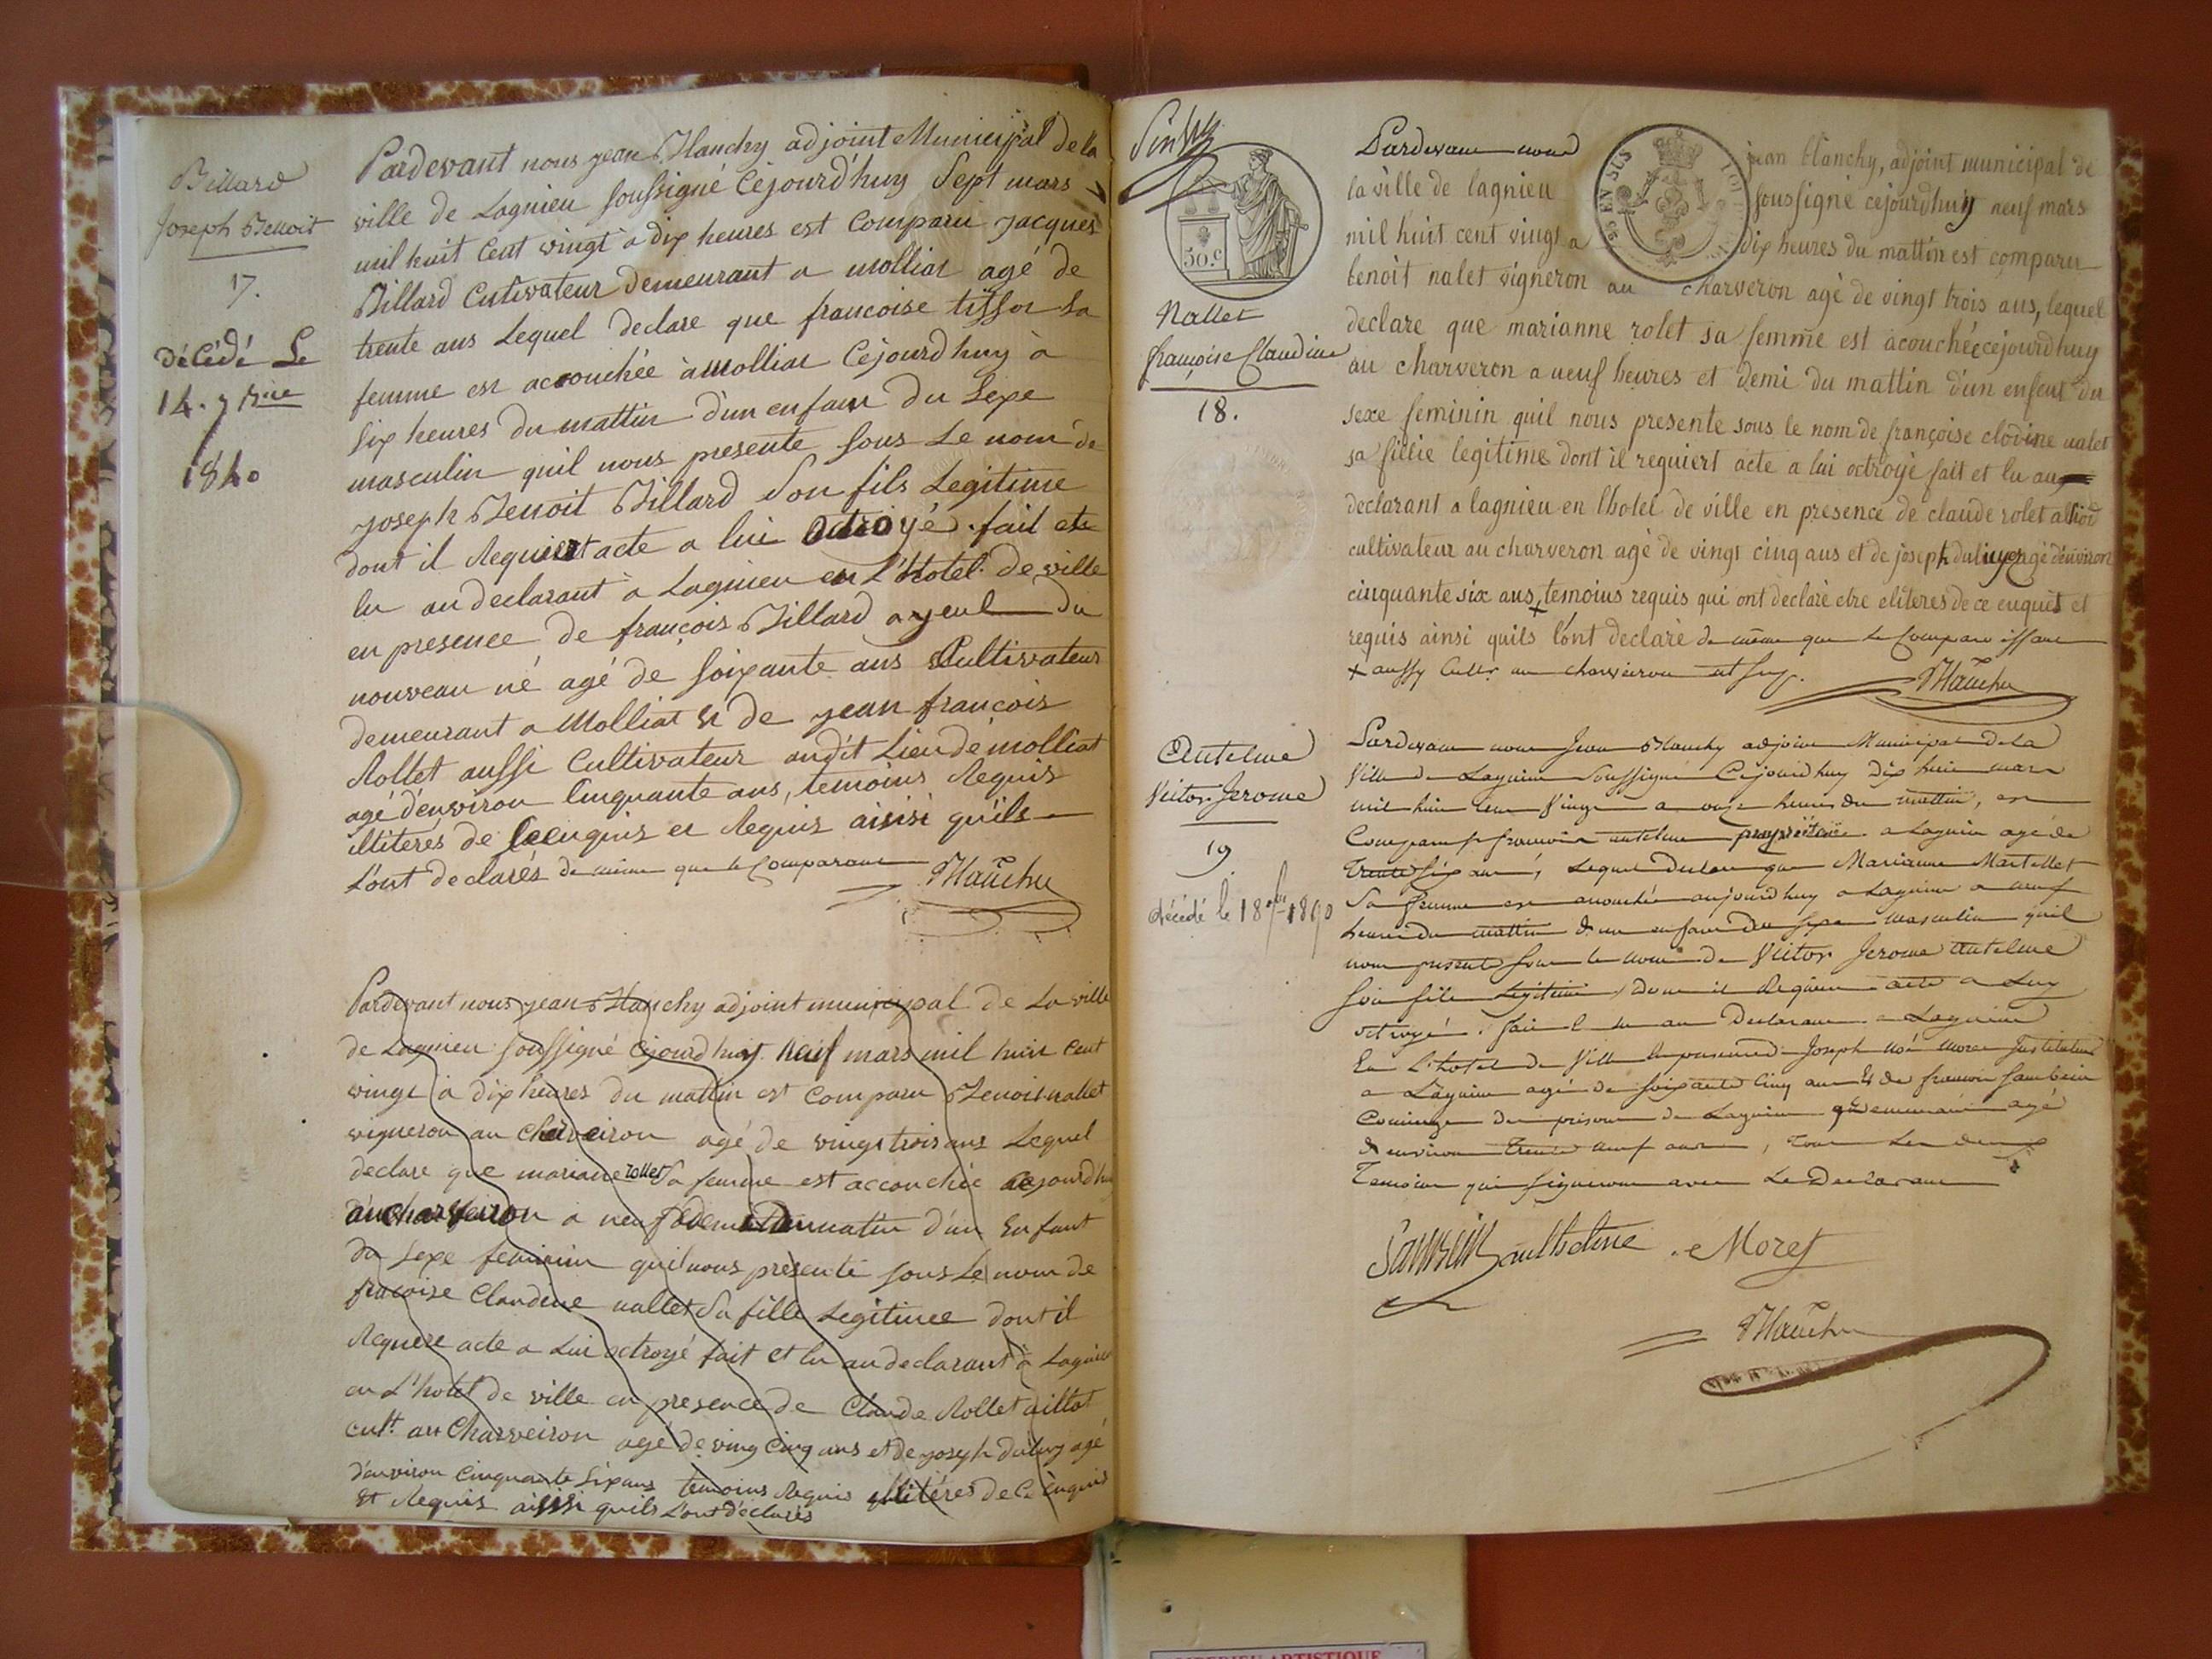 Billard
Joseph Benoit
17.
décédé Le
14. 7bre
1840
Pardevant nous jean Blanchy adjoint Municipal de la
ville de Lagnieu soussigné Cejourd'huy Sept mars
mil huit Cent vingt à dix heures est Comparu jacques
Billard Cutivateur demeurant a molliat agé de
trente ans Lequel declare que francoise tissot Sa
femme est accouchée à molliat Cejourd huy à
six heures du mattin d'un enfant du Sexe
masculin quil nous presente sous Le nom de
joseph Benoit Billard Son fils Legitime
dont il Requiert acte a lui octroyé. fait et
lu au declarant à Lagnieu en L'hotel de ville
en presence de françois Billard ayeul du
nouveau né agé de soixante ans Cultivateur
demeurant a Molliat et de jean francois
Rollet aussi Cultivateur audit Lieu de molliat
agé d'environ Cinquante ans, temoins Requis
illiterés de Ce enquis et Requis aisisi qu'ils
L'ont declarés de même que le Comparant
Blanchy
Pardevant nous jean Blanchy adjoint municipal de La ville
de Lagnieu soussigné Cejourd huy neuf mars mil huit Cent
vingt à dix heures du mattin est Comparu Benoit nallet
vigneron au Charveiron agé de vingt trois ans Lequel
declare que mariane rollet Sa femme est accouchée cejourd'hu
au charveiron a neuf du matin d'un Enfant
du Sexe feminin quil nous presente sous Le nom de
fracoise Claudine nallet Sa fille Legitimee dont il
Requere acte a Lui octroyé fait et lu au declarant à Lagnieu
en L'hotel de ville en presence de Claude Rollet aillot
cult. au Charveiron agé de ving Cinq ans et de joseph duluy agé
d'environ Cinquante Six ans temoins Requis illitérés de Ce enquis
et Requis aisisi quils L'ont déclarés
50.c
EN SUS
Nallet
françoise Claudine
18.
Pardevant nous jean blanchy, adjoint municipal de
la ville de lagnieu soussigné cejourdhuy neuf mars
mil huit cent vingt a dix heures du mattin est comparu
benoit nalet vigneron au charveron agé de vingt trois ans, lequel
declare que marianne rolet sa femme est acouchée cejourdhuy
au charveron a neuf heures et demi du mattin d'un enfent du
sexe feminin quil nous presente sous le nom de françoise clodine nalet
sa fillie legitime dont il requiert acte a lui octroyé fait et lu au
declarant a lagnieu en lhotel de ville en presence de claude rolet
cultivateur au charveron agé de vingt cinq ans et de joseph agé denviron
cinquante six ans + temoins requis qui ont declaré etre eliteres de ce enquis et
requis ainsi quils l'ont declaré de même que le Comparoissant
+ aussy Cultr au charveiron
Blanchy
Antelme
Victor Jerome
19.
décédé le 18 1890
Pardevant nous Jean Blanchy adjoint Municipal de la
Ville de Lagnieu Soussigné Cejourd'huy dix huit mars
mil huit Cent Vingt a onze heures du mattin, est
Comparu françois antelme propriétaire a Lagnieu agé de
trente six ans, Lequel declare que Marianne Martellet
Sa femme est accouchée aujourd'huy a Lagnieu a neuf
heures du mattin d'un enfant du sexe masculin quil
nous presente sous le nom de Victor Jerome antelme
son fils Legitime, dont il Requiert acte a Luy
octroyé. fait & lu au Declarant a Lagnieu
En L'hotel de Ville En presence de Joseph Moret Instituteur
a Lagnieu agé de soixante Cinq ans Et de françois Sambein
Concierge des prisons de Lagnieu y demeurant agé
d'environ trente neuf ans, tous Les deux
Temoins qui signeront avec Le Declarant
Sambein anthelme Moret
Blanchy